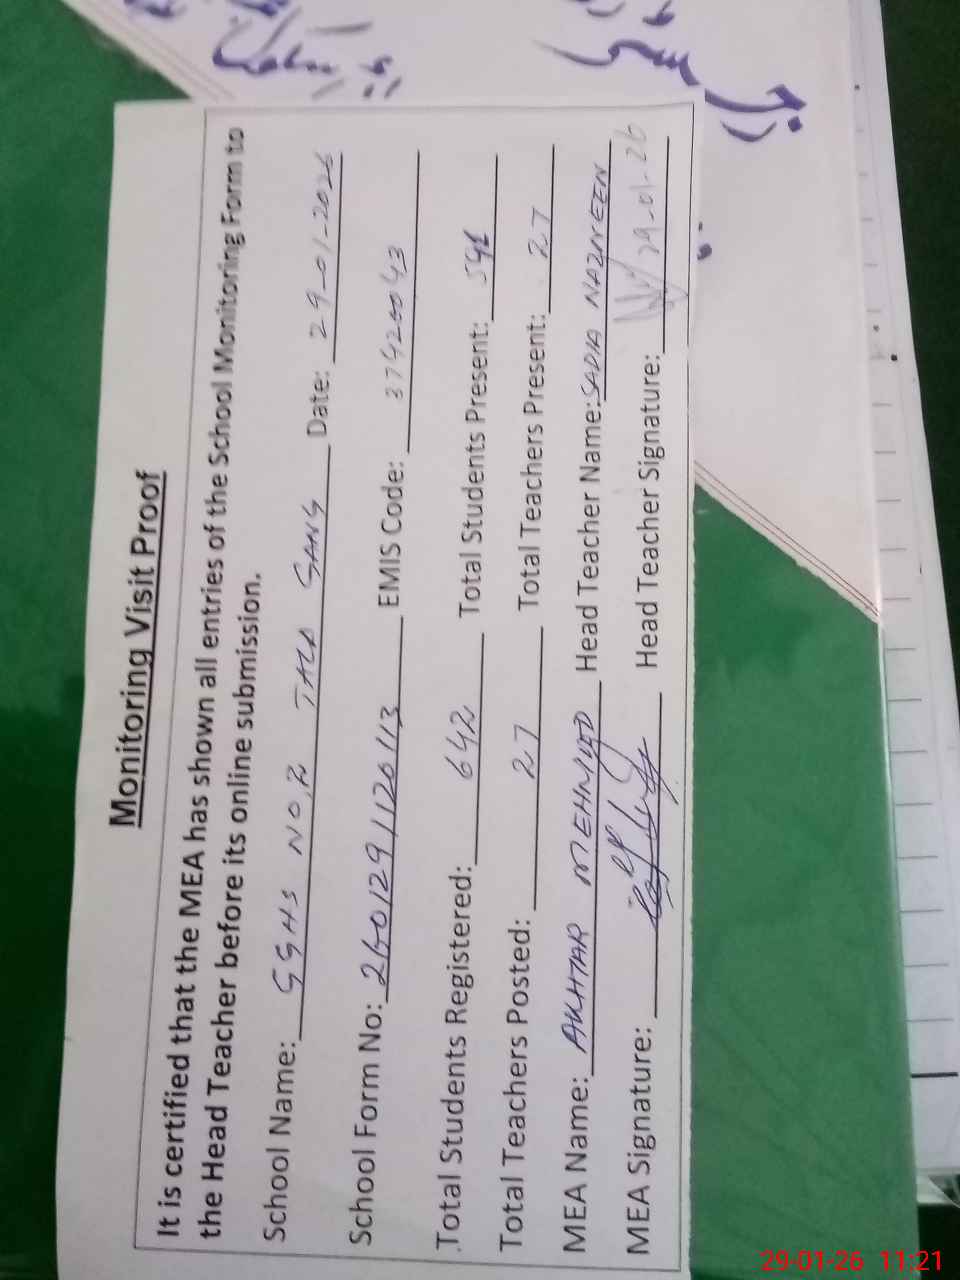 Monitoring Visit Proof
It is certified that the MEA has shown all entries of the School Monitoring Form to
the Head Teacher before its online submission.
School Name: GGHS NO,2 TALA GANG Date: 29-01-2026
School Form No: 2601291120113 EMIS Code: 37420043
Total Students Registered: 642 Total Students Present:
Total Teachers Posted: 27 Total Teachers Present: 27
MEA Name: AKHTAR MEHMOOD Head Teacher Name: SADIA NAZNEEN
MEA Signature: Head Teacher Signature: 29-01-26
29-01-26 11:21